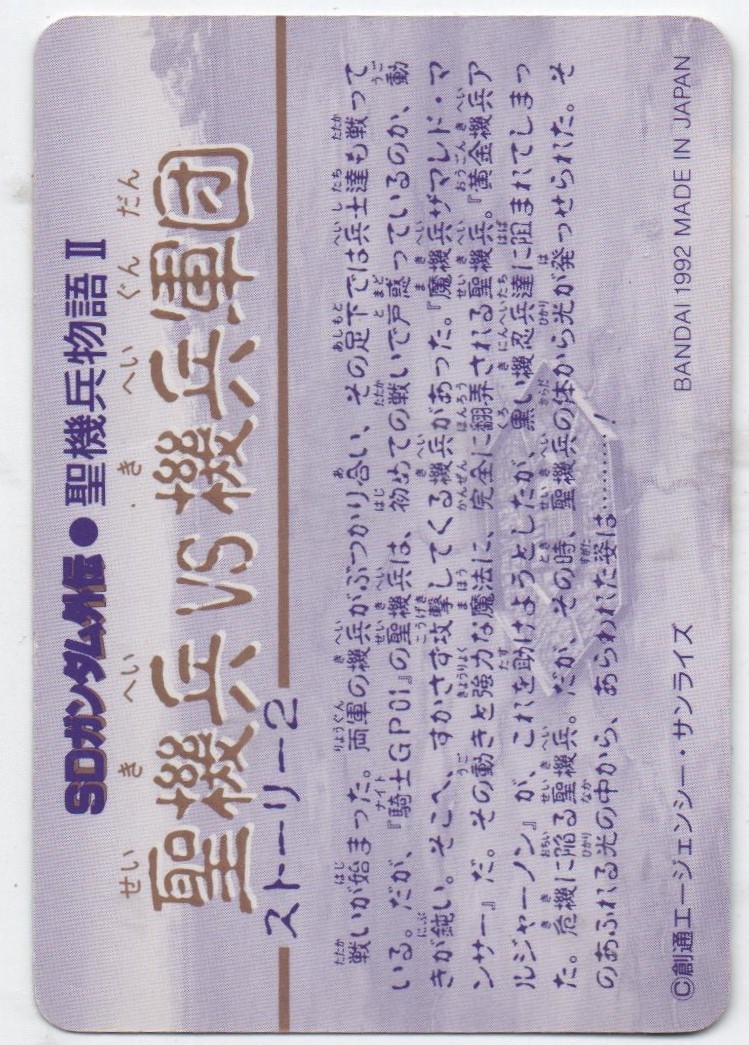 SDガンダム外伝●聖機兵物語Ⅱ
せいきへい きへいぐんだん
聖機兵VS機兵軍団
ストーリー2
戦いが始まった。両軍の機兵がぶつかり合い、その足下では兵士達も戦って
いる。だが、『騎士GP01』の聖機兵は、初めての戦いで戸惑っているのか、動
きが鈍い。そこへ、すかさず攻撃してくる機兵があった。『魔機兵ザマレド・マ
ンサー』だ。その動きと強力な魔法に、完全に翻弄される聖機兵。『黄金機兵ア
ルジャーノン』が、これを助けようとしたが、黒い機忍兵達に阻まれてしまっ
た。危機に陥る聖機兵。だが、その時、聖機兵の体から光が発っせられた。そ
のあふれる光の中から、あらわれた姿は………!
©創通エージェンシー・サンライズ
BANDAI 1992 MADE IN JAPAN